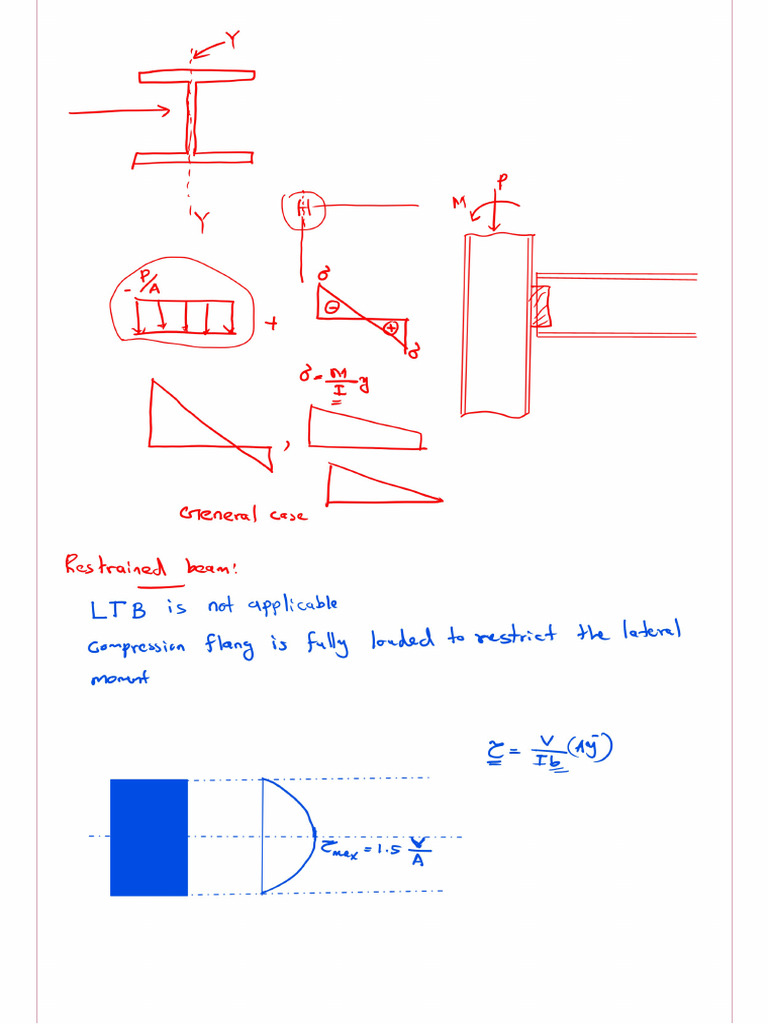 Y
Y
H
P
M
- P/A
+
σ
⊖
⊕
σ
σ = M/I y
,
General case
Restrained beam:
LTB is not applicable
compression flang is fully loaded to restrict the lateral
moment
τ = V/Ib (Aȳ)
τmax = 1.5 V/A